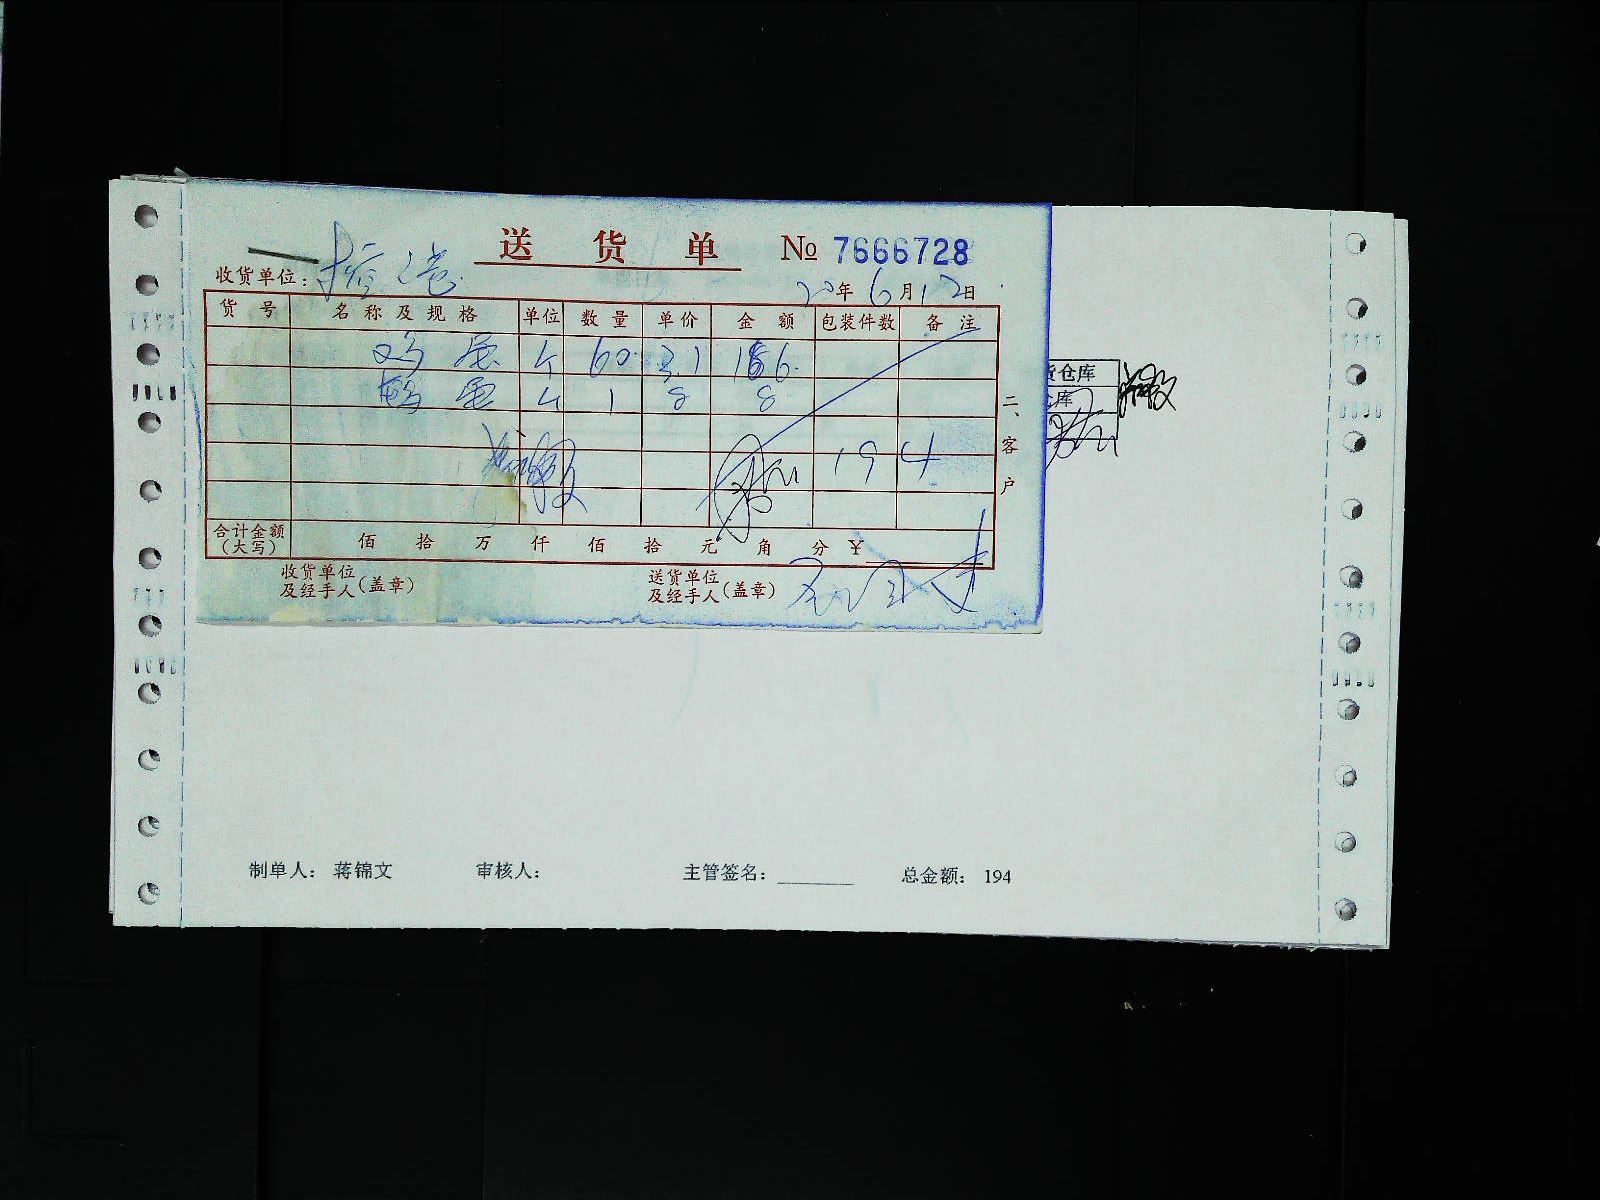 送 货 单 № 7666728
收货单位:
20年6月12日
货 号 名 称 及 规 格 单位 数 量 单价 金 额 包装件数 备 注
鸡 60 3.1 186
1 8 8
货仓库
库
194
二、客户
合计金额(大写) 佰 拾 万 仟 佰 拾 元 角 分 ¥
收货单位及经手人(盖章) 送货单位及经手人(盖章)
制单人: 蒋锦文 审核人: 主管签名: 总金额: 194